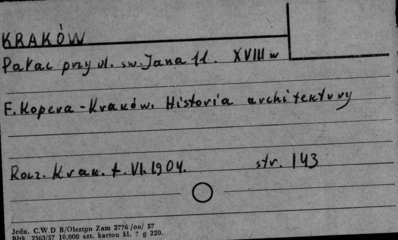 KRAKÓW
Pałac przy ul. sw. Jana 11. XVIII w
F. Kopera - Kraków. Historia architektury
Rocz. Krak. t. VI. 1904. str. 143
Jedn. C.W.D B/Olsztyn Zam 2776 /on/ 57
Bltk. 2363/57 10.000 szt. karton kl. ? g 220.